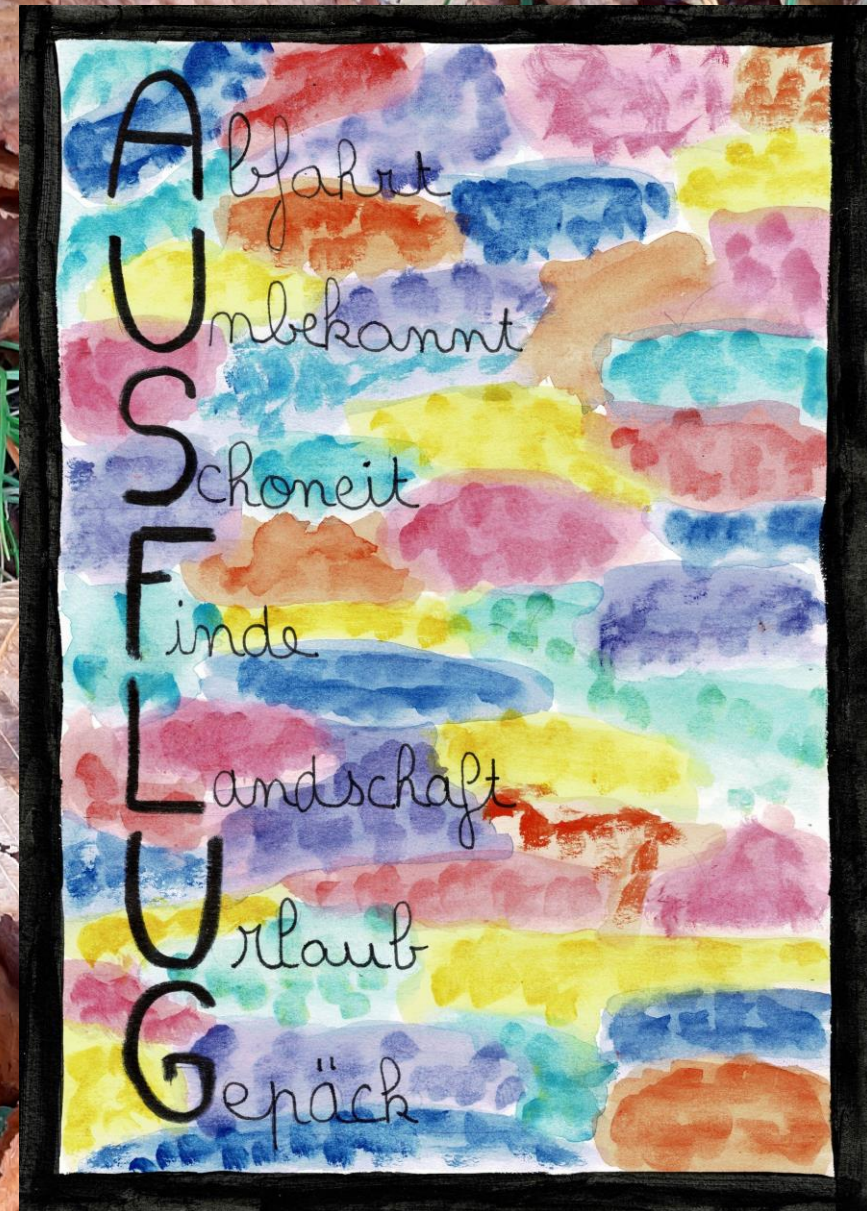 Abfahrt
Unbekannt
Schoneit
Finde
Landschaft
Urlaub
Gepäck